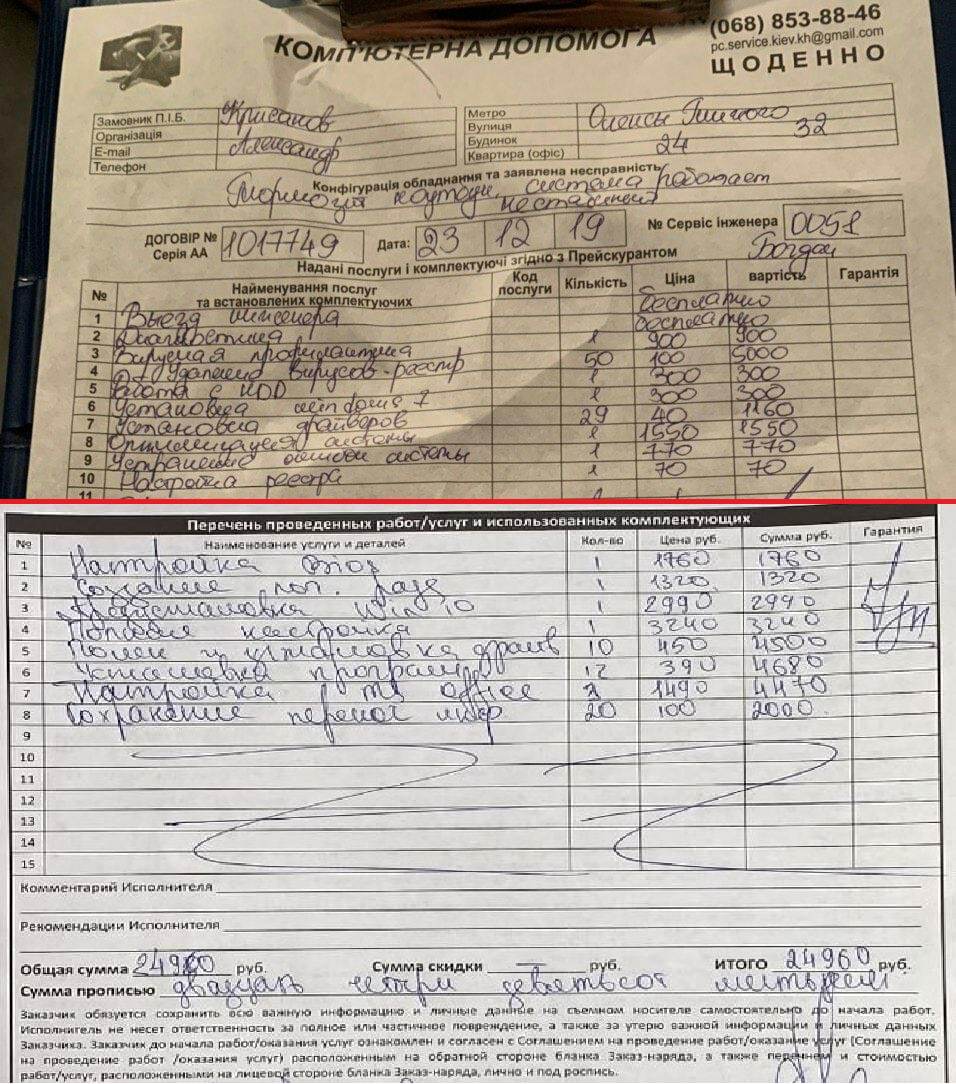 КОМП'ЮТЕРНА ДОПОМОГА
(068) 853-88-46
pc.service.kiev.kh@gmail.com
ЩОДЕННО
Замовник П.І.Б. Крисанов
Організація
E-mail Александр
Телефон
Метро
Вулиця Олексы Тихого
Будинок 32
Квартира (офіс) 24
Конфігурація обладнання та заявлена несправність
Тормозит ноутбук, система работает
нестабильно
ДОГОВІР № Серія АА 1017749 Дата: 23 12 19 № Сервіс інженера 0051
Богдан
Надані послуги і комплектуючі згідно з Прейскурантом
№ Найменування послуг та встановлених комплектуючих Код послуги Кількість Ціна вартість Гарантія
1 Выезд инженера бесплатно
2 Диагностика бесплатно
3 Вирусная профилактика 1 900 900
4 Удаление вирусов-реестр 50 100 5000
5 Работа с HDD 1 300 300
6 Установка windows 7 1 300 300
7 Установка драйверов 29 40 1160
8 Оптимизация системы 1 1550 1550
9 Устранение ошибок системы 1 770 770
10 Настройка реестра 1 70 70
11
Перечень проведенных работ/услуг и использованных комплектующих
№ Наименование услуги и деталей Кол-во Цена руб. Сумма руб. Гарантия
1 Настройка биоз 1 1760 1760
2 Создание 1 1320 1320
3 Win 10 1 2990 2990
4 настройка 1 3240 3240
5 Поиск и установка драйв 10 450 4500
6 Установка программ 12 390 4680
7 Настройка ms office 3 1490 4470
8 Сохранение 20 100 2000
9
10
11
12
13
14
15
Комментарий Исполнителя
Рекомендации Исполнителя
Общая сумма 24960 руб. Сумма скидки — руб. ИТОГО 24960 руб.
Сумма прописью двадцать четыри девятьсот шестьдесят
Заказчик обязуется сохранить всю важную информацию и личные данные на съемном носителе самостоятельно до начала работ.
Исполнитель не несет ответственность за полное или частичное повреждение, а также за утерю важной информации и личных данных
Заказчика. Заказчик до начала работ/оказания услуг ознакомлен и согласен с Соглашением на проведение работ/оказание услуг (Соглашение
на проведение работ /оказания услуг) расположенным на обратной стороне бланка Заказ-наряда, а также перечнем и стоимостью
работ/услуг, расположенными на лицевой стороне бланка Заказ-наряда, лично и под роспись.